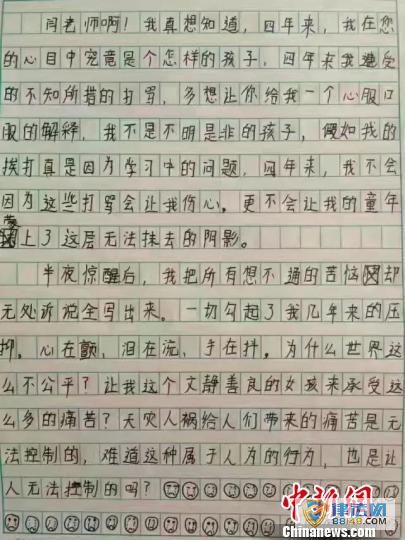 闫老师啊！我真想知道，四年来，我在您
的心目中究竟是个怎样的孩子，四年来我遭受
的不知所措的打骂，多想让你给我一个心服口
服的解释，我不是不明是非的孩子，假如我的
挨打真是因为学习中的问题，四年来，我不会
因为这些打骂会让我伤心。更不会让我的童年
蒙上了这层无法抹去的阴影。
半夜惊醒后，我把所有想不通的苦恼却
无处诉说全写出来。一切勾起了我几年来的压
抑。心在颤，泪在流，手在抖。为什么世界这
么不公平？让我这个文静善良的女孩来承受这
么多的痛苦？天灾人祸给人们带来的痛苦是无
法控制的，难道这种属于人为的行为，也是让
人无法控制的吗？
中新网
律法网
88148.com
Chinanews.com